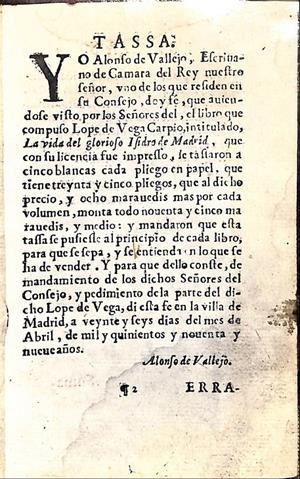 TASSA.
YO Alonso de Vallejo, Escriua-
no de Camara del Rey nuestro
señor, vno de los que residen en
su Consejo, doy fê, que auien-
dose visto por los Señores del, el libro que
compuso Lope de Vega Carpio, intitulado,
La vida del glorioso Isidro de Madrid, que
con su licencia fue impresso, le tassaron a
cinco blancas cada pliego en papel. que
tiene treynta y cinco pliegos, que al dicho
precio, y ocho marauedis mas por cada
volumen, monta todo nouenta y cinco ma
rauedis, y medio: y mandaron que esta
tassa se pusiesse al principio de cada libro,
para que se sepa, y se entienda en lo que se
ha de vender. Y para que dello conste, de
mandamiento de los dichos Señores del
Consejo, y pedimiento de la parte del di-
cho Lope de Vega, di esta fe en la villa de
Madrid, a veynte y seys dias del mes de
Abril, de mil y quinientos y nouenta y
nueue años.
Alonso de Vallejo.
¶2 ERRA-